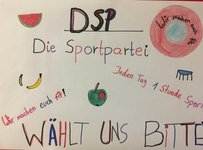 DSP
Wir machen euch
Die Sportpartei
Jeden Tag 1 Stunde Sport
Wir machen euch fit!
WÄHLT UNS BITTE